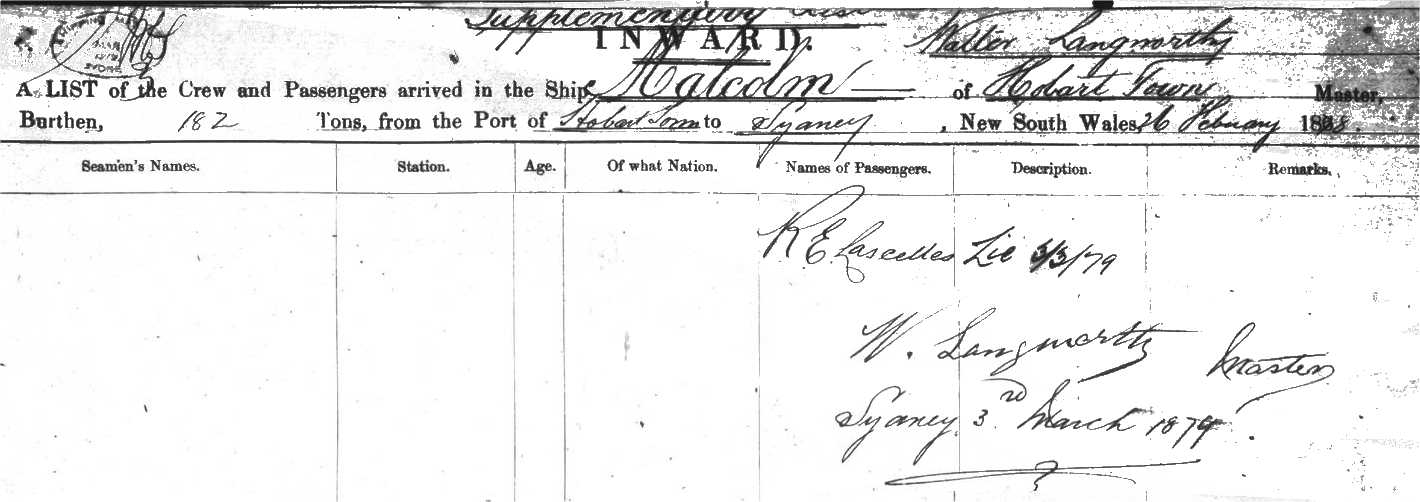 Supplementery List
INWARD.
Walter Langworthy
A LIST of the Crew and Passengers arrived in the Ship Malcolm of Hobart Town, Master,
Burthen, 182 Tons, from the Port of Hobart Town to Sydney, New South Wales, 26 February 18
Seamen's Names. Station. Age. Of what Nation. Names of Passengers. Description. Remarks.
R E Lascelles 3/3/79
W. Langworthy Master
Sydney 3rd March 1879